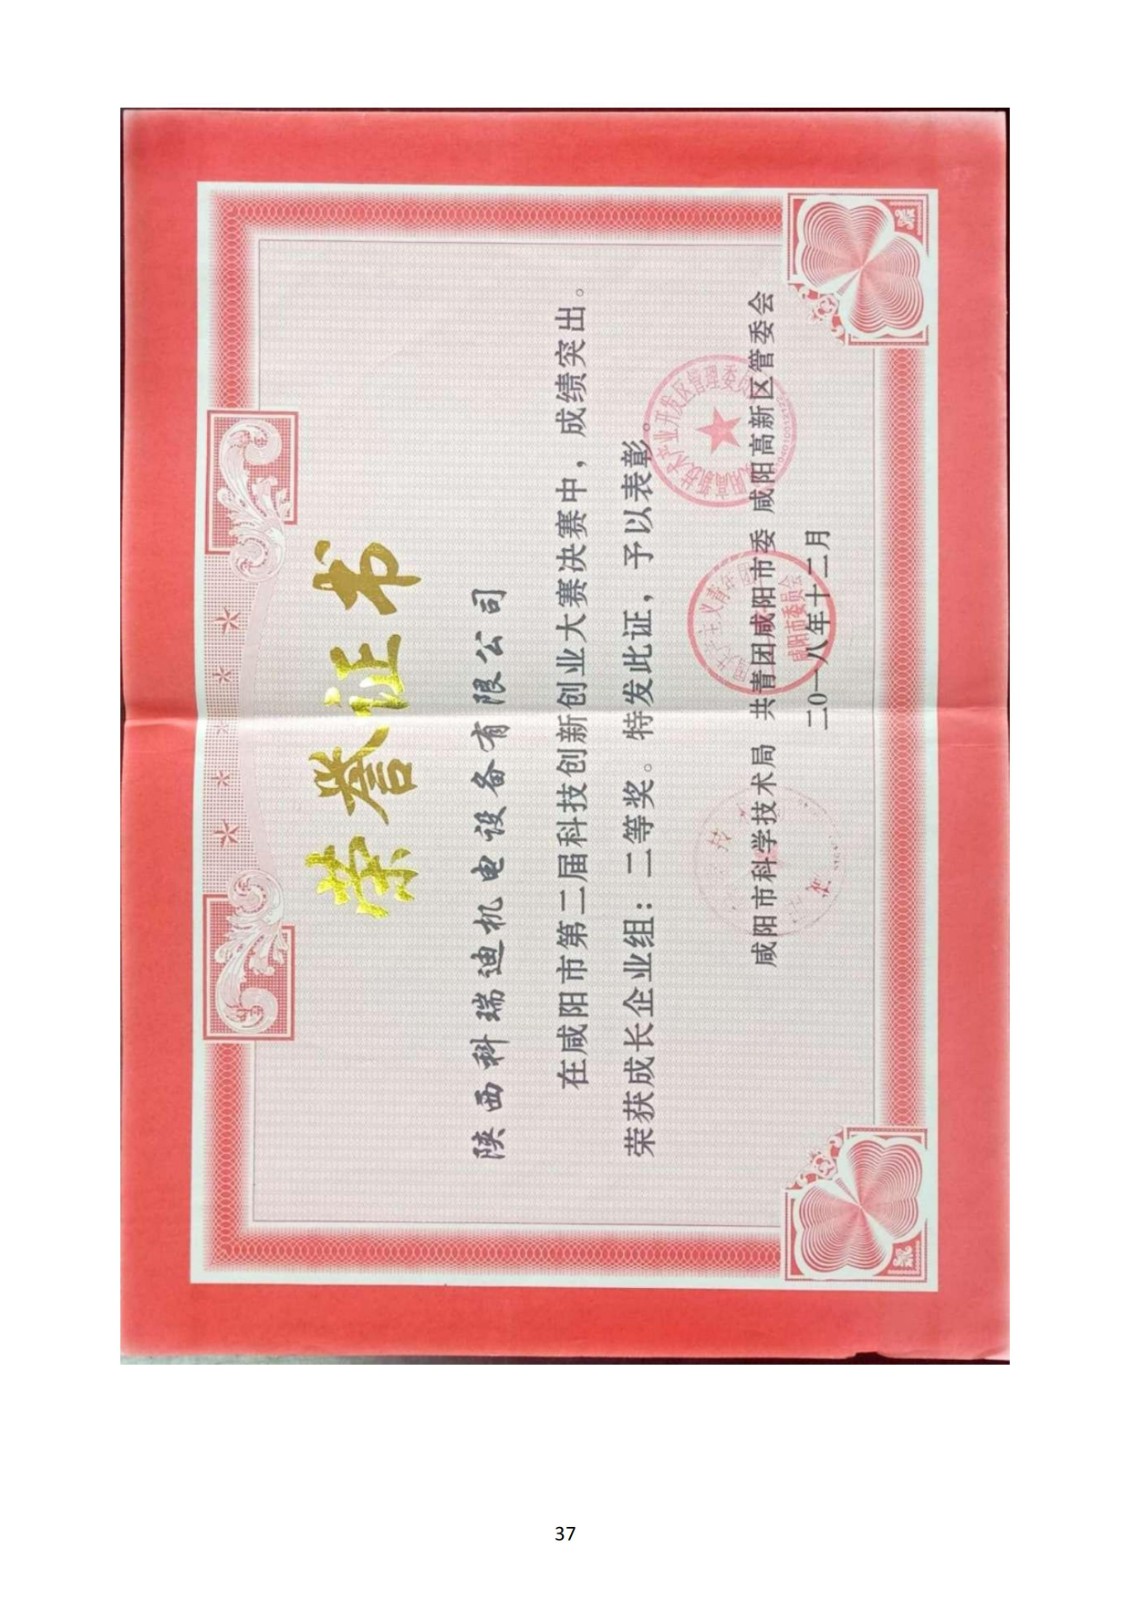 荣誉证书
陕西科瑞迪机电设备有限公司
在咸阳市第二届科技创新创业大赛决赛中，成绩突出。
荣获成长企业组：二等奖。特发此证，予以表彰。
咸阳市科学技术局 共青团咸阳市委 咸阳高新区管委会
二0一八年十二月
咸阳市委员会
37